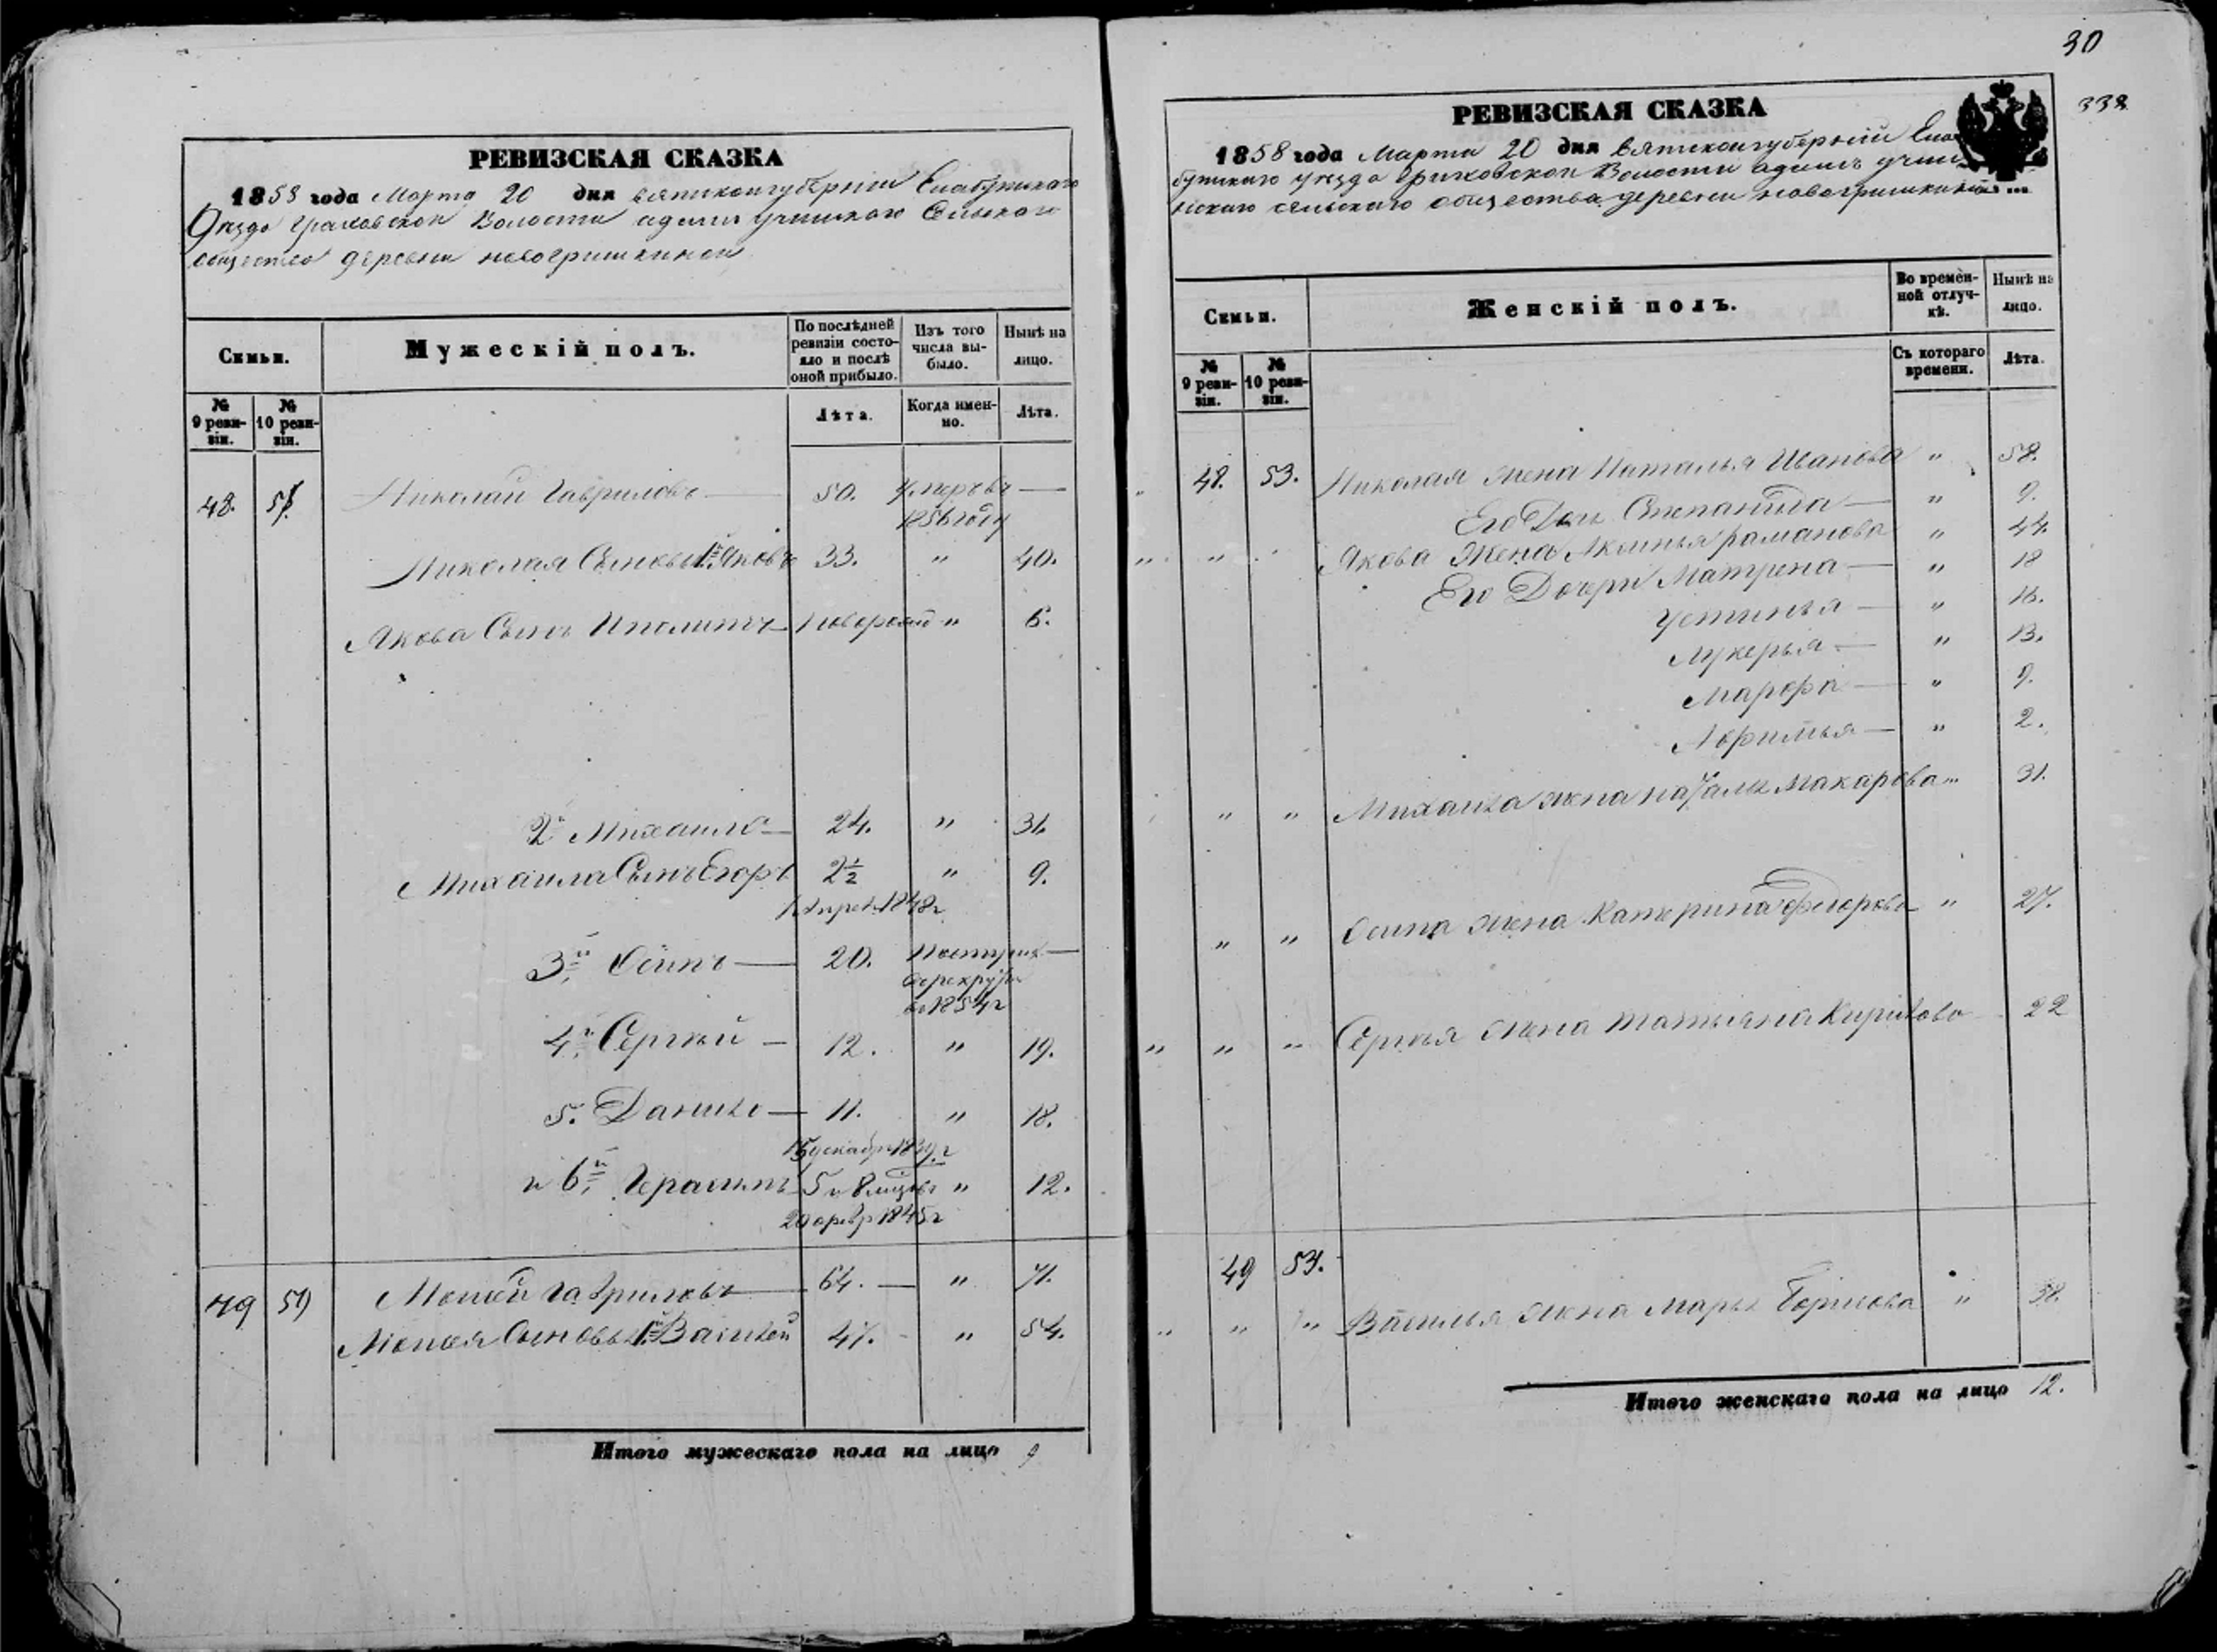 РЕВИЗСКАЯ СКАЗКА
1858 года Марта 20 дня вятской губернии Елабугскаго
Уезда Граховской Волости адамъ учинскаго Сельскаго
общества деревни новогришкиной
Семьи.
Мужескій полъ.
По послѣдней ревизіи состояло и послѣ оной прибыло.
Изъ того числа выбыло.
Нынѣ на лицо.
№ 9 ревизіи.
№ 10 ревизіи.
Лѣта.
Когда именно.
Лѣта.
48. Николай Гавриловъ 50. Умеръ въ
1856 году
Николая Сыновья 1й Яковъ 33. " 40.
Якова Сынъ Иполитъ новорожд " 6.
2й Михаило 24. " 31.
Михаила Сынъ Егоръ 2½ " 9.
1848г
3й Осипъ 20.
в 1854г
4й Сергѣй 12. " 19.
5. Данило 11. " 18.
15 декабр 1839г
и 6й Герасимъ 5 и 8 мцовъ " 12.
20 февр 1845г
49 Моисей Гавриловъ 64. " 71.
Моисея Сыновья 1й Василей 47. " 54.
Итого мужескаго пола на лицо 9
30
338
РЕВИЗСКАЯ СКАЗКА
1858 года Марта 20 дня вятской губернии Ела
бугскаго уезда Граховской Волости адамъ учин
скаго сельскаго общества деревни новогришкиной
Семьи.
Женскій полъ.
Во временной отлучкѣ.
Нынѣ на лицо.
№ 9 ревизіи.
№ 10 ревизіи.
Съ котораго времени.
Лѣта.
48. 53. Николая жена Наталья Иванова " 58.
Его Дочь Степанида " 9.
" Якова Жена Аксинья романова " 44.
Его Дочери Матрена " 18
Устинья " 16.
Лукерья " 13.
Марфа " 9.
Афимья " 2.
" " Михаила жена Макарова " 31.
" " Осипа жена Катерина Федорова " 27.
" " " Сергѣя жена татьяна Кирилова 22
49 53.
" " " Василья жена Марья Борисова "
Итого женскаго пола на лицо 12.